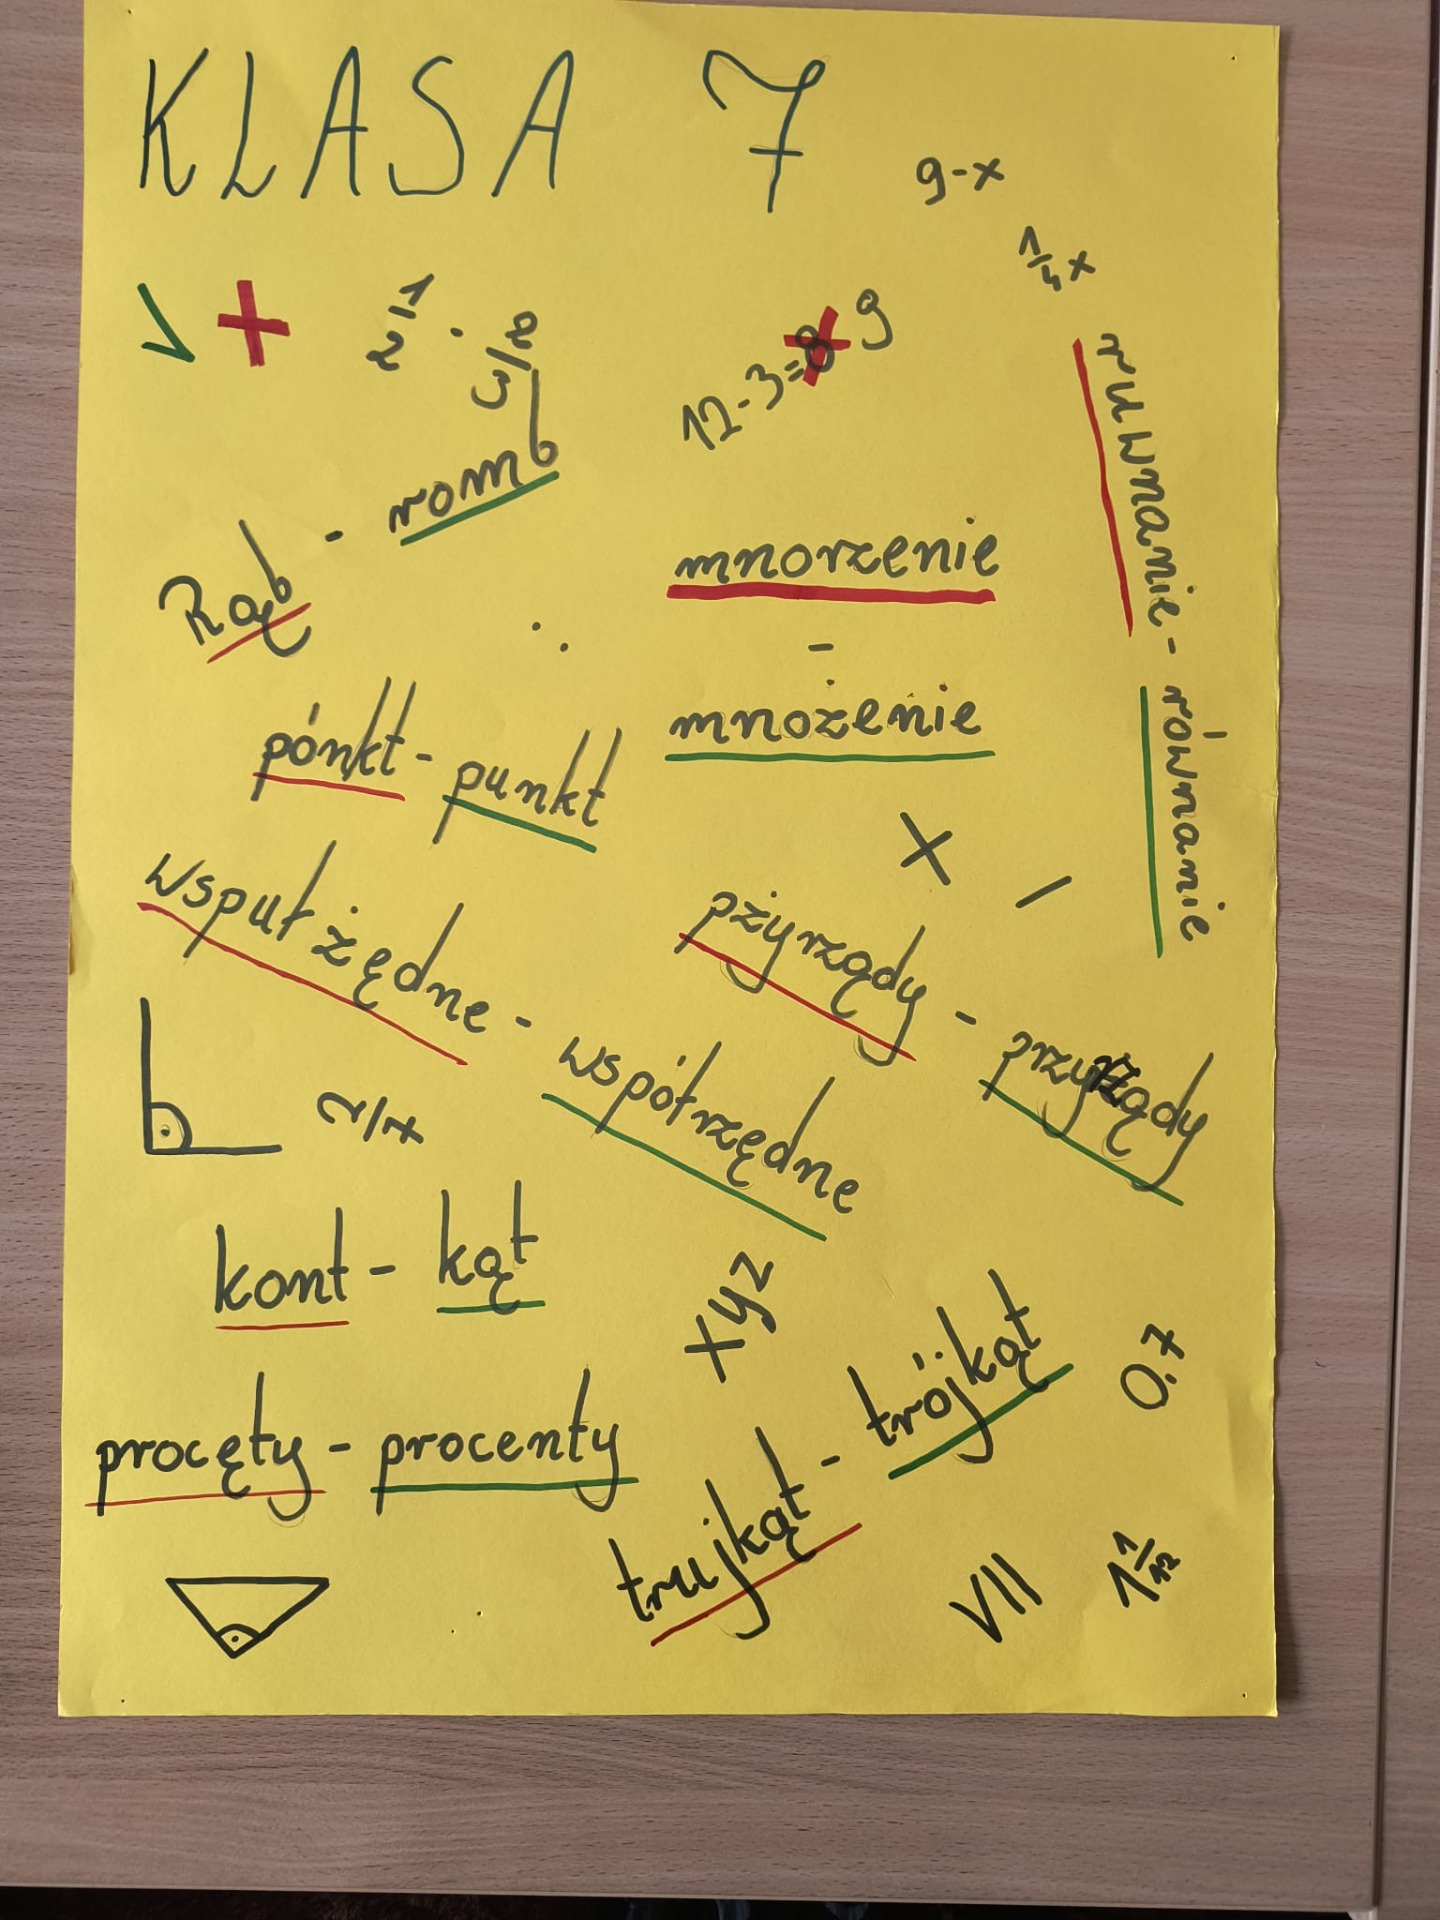 KLASA 7
9-x
1/4 x
1/2 · 2/3
12-3=8 9
Rąb - romb
mnorzenie
-
mnożenie
ruwnanie - równanie
pónkt - punkt
wsputżędne - współrzędne
pżyrządy - przyrządy
kont - kąt
xyz
procęty - procenty
trujkąt - trójkąt
0.7
VII
1 1/12